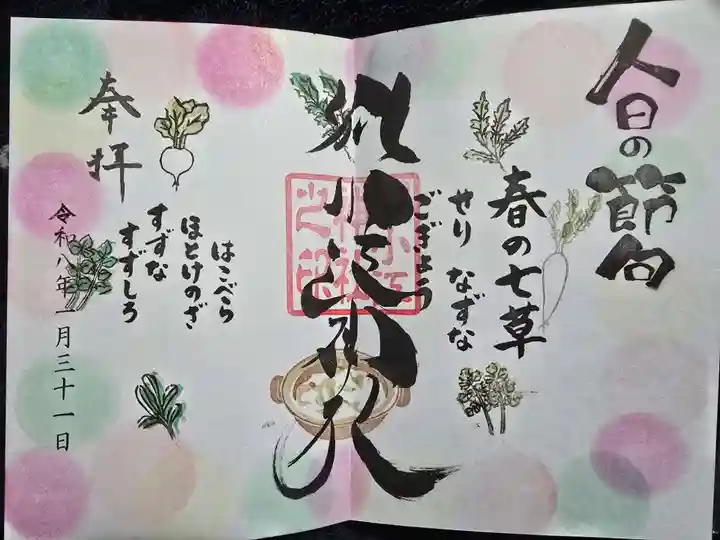 人日の節句
春の七草
せり なずな
ごぎょう
はこべら
ほとけのざ
すずな
すずしろ
奉拝
令和八年一月三十一日